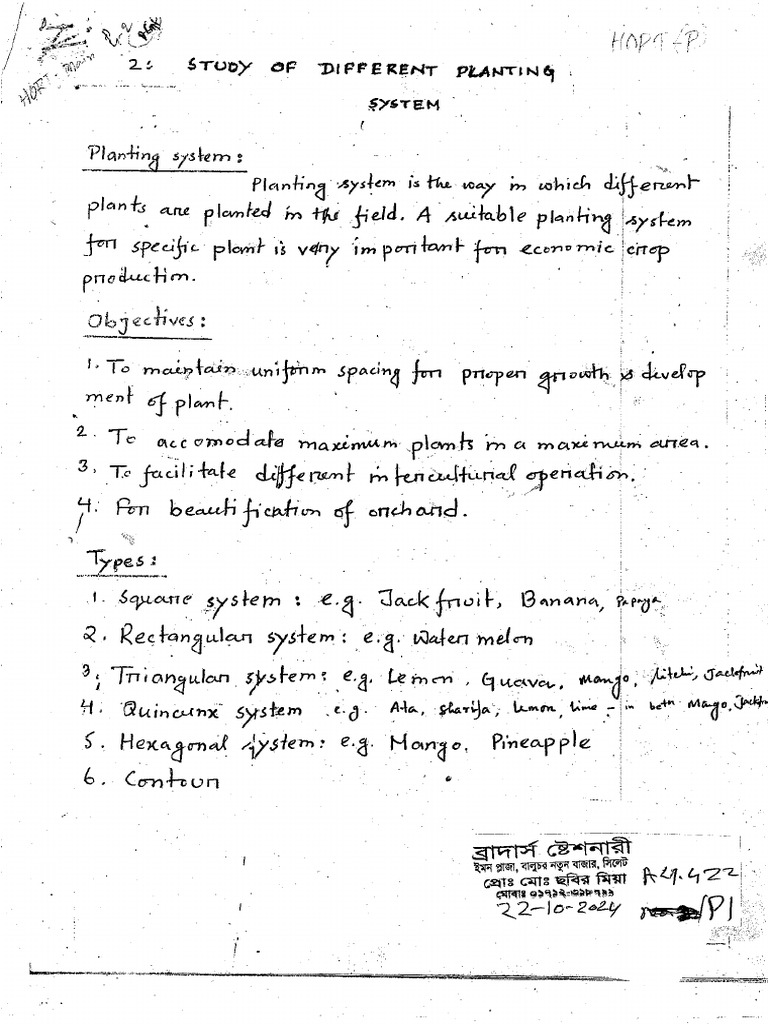 HORT (P)
HORT. Main
2: STUDY OF DIFFERENT PLANTING
SYSTEM
Planting system:
Planting system is the way in which different
plants are planted in the field. A suitable planting system
for specific plant is very important for economic crop
production.
Objectives:
1. To maintain uniform spacing for proper growth & develop
ment of plant.
2. To accomodate maximum plants in a maximum area.
3. To facilitate different intercultural operation.
4. For beautification of orchard.
Types:
1. Square system: e.g. Jackfruit, Banana, Papaya
2. Rectangular system: e.g. Water melon
3. Triangular system: e.g. Lemon, Guava, Mango, litchi, Jackfruit
4. Quincunx system e.g. Ata, sharifa, lemon, lime - in both Mago, Jackfr
5. Hexagonal system: e.g. Mango, Pineapple
6. Contour
ব্রাদার্স ষ্টেশনারী
ইমন প্লাজা, বালুচর নতুন বাজার, সিলেট
প্রোঃ মোঃ ছবির মিয়া
মোবাঃ
22-10-2024
/P1